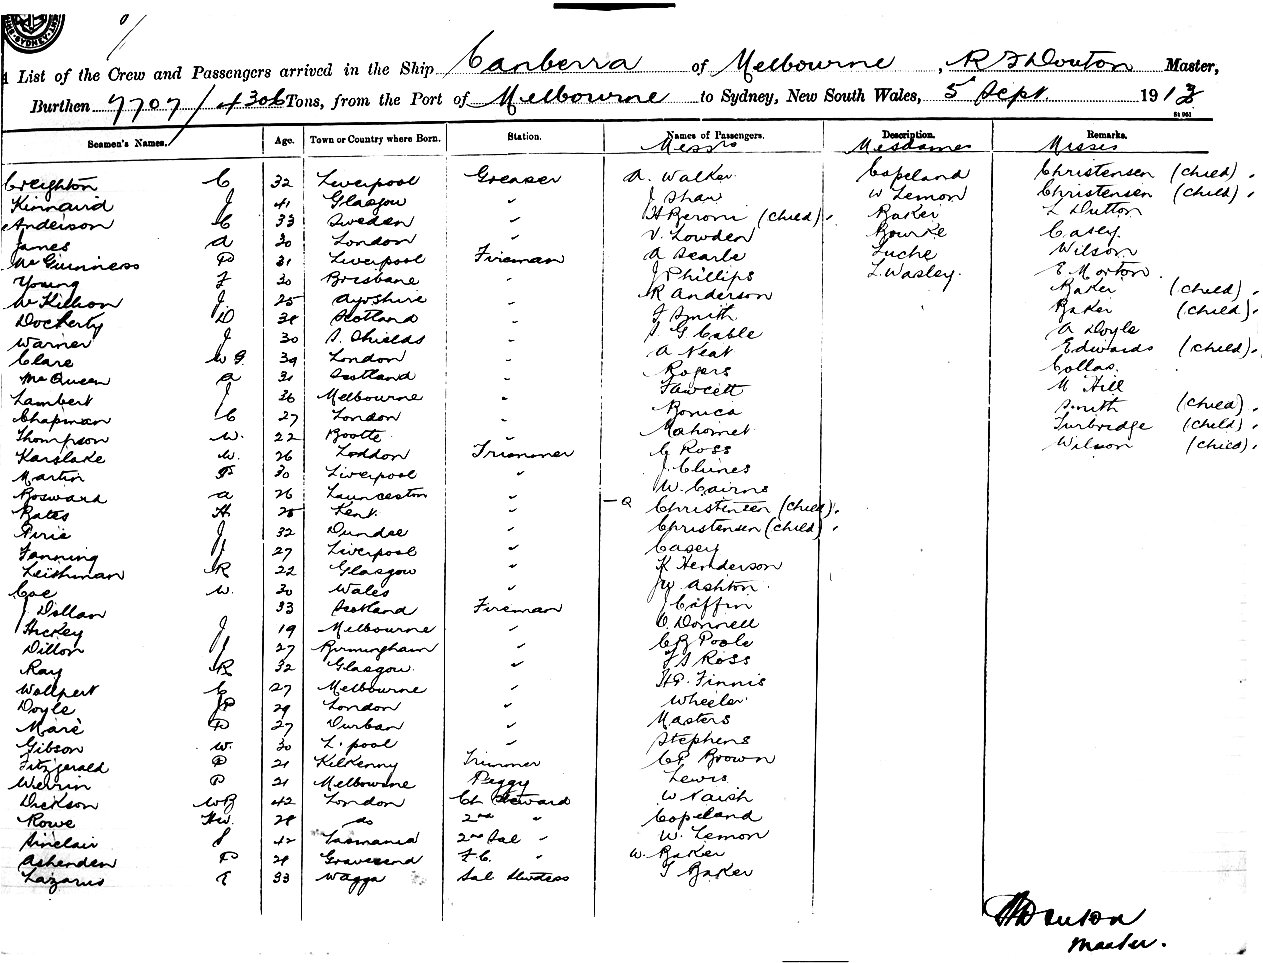 List of the Crew and Passengers arrived in the Ship Canberra of Melbourne, R J Douton Master,
Burthen 7707/4306 Tons, from the Port of Melbourne to Sydney, New South Wales, 5 Sept. 1913
Seamen's Names. Age. Town or Country where Born. Station. Names of Passengers. Description. Remarks.
Messrs Mesdames Misses
Creighton C 32 Liverpool Greaser A. Walker Copeland Christensen (Child)
Kinnaird J 41 Glasgow " J Shaw W Lemon Christensen (Child)
Anderson C 33 Sweden " H Peroni (Child) Baker L Dutton
James A 30 London " V. Lowden Bourke Casey
McGuinness P 31 Liverpool Fireman A Searle Luche Wilson
Young F 30 Brisbane " J Phillips L Wasley E Morton
McKillion J 25 Ayrshire " R Anderson Baker (Child)
Docherty D 38 Scotland " J Smith Baker (Child)
Warner J 30 S. Shields " G Cable A Doyle
Clare W G 39 London " A Neat Edwards (Child)
McQueen A 31 Scotland " Rogers Collas
Lambert J 36 Melbourne " Fawcett M Hill
Chapman C 27 London " Bonica Smith (Child)
Thompson W. 22 Bootle " Mahomet Turbridge (Child)
Karslake W. 26 Loddon Trimmer C Ross Wilson (Child)
Martin P 30 Liverpool " J Clines
Bosward A 26 Launceston " W. Cairns
Bates H 25 Kent " Christensen (Child)
Pirie J 32 Dundee " Christensen (Child)
Fanning J 27 Liverpool " Casey
Leishman R 22 Glasgow " K Henderson
Coe W. 30 Wales " Ashton
J Dollan 33 Scotland Fireman J Giffin
Hickey J 19 Melbourne " O'Donnell
Dillon J 27 Birmingham " C B Poole
Ray R 32 Glasgow " Ross
Wollpert C 27 Melbourne " H P. Finnis
Doyle J P 29 London " Wheeler
Mare P 27 Durban " Masters
Gibson W. 30 L'pool " Stephens
Fitzgerald P 21 Kilkenny Trimmer Brown
Werrin P 21 Melbourne Peggy Lewis
Dickson W B 42 London Ch Steward W Naish
Rowe 28 do 2nd " Copeland
Sinclair J 42 Tasmania 2nd Sal " W. Lemon
Ashenden P 28 Gravesend F. C. " W. Baker
Lazarus T 33 Wagga Sal Stwdess T Baker
Master.